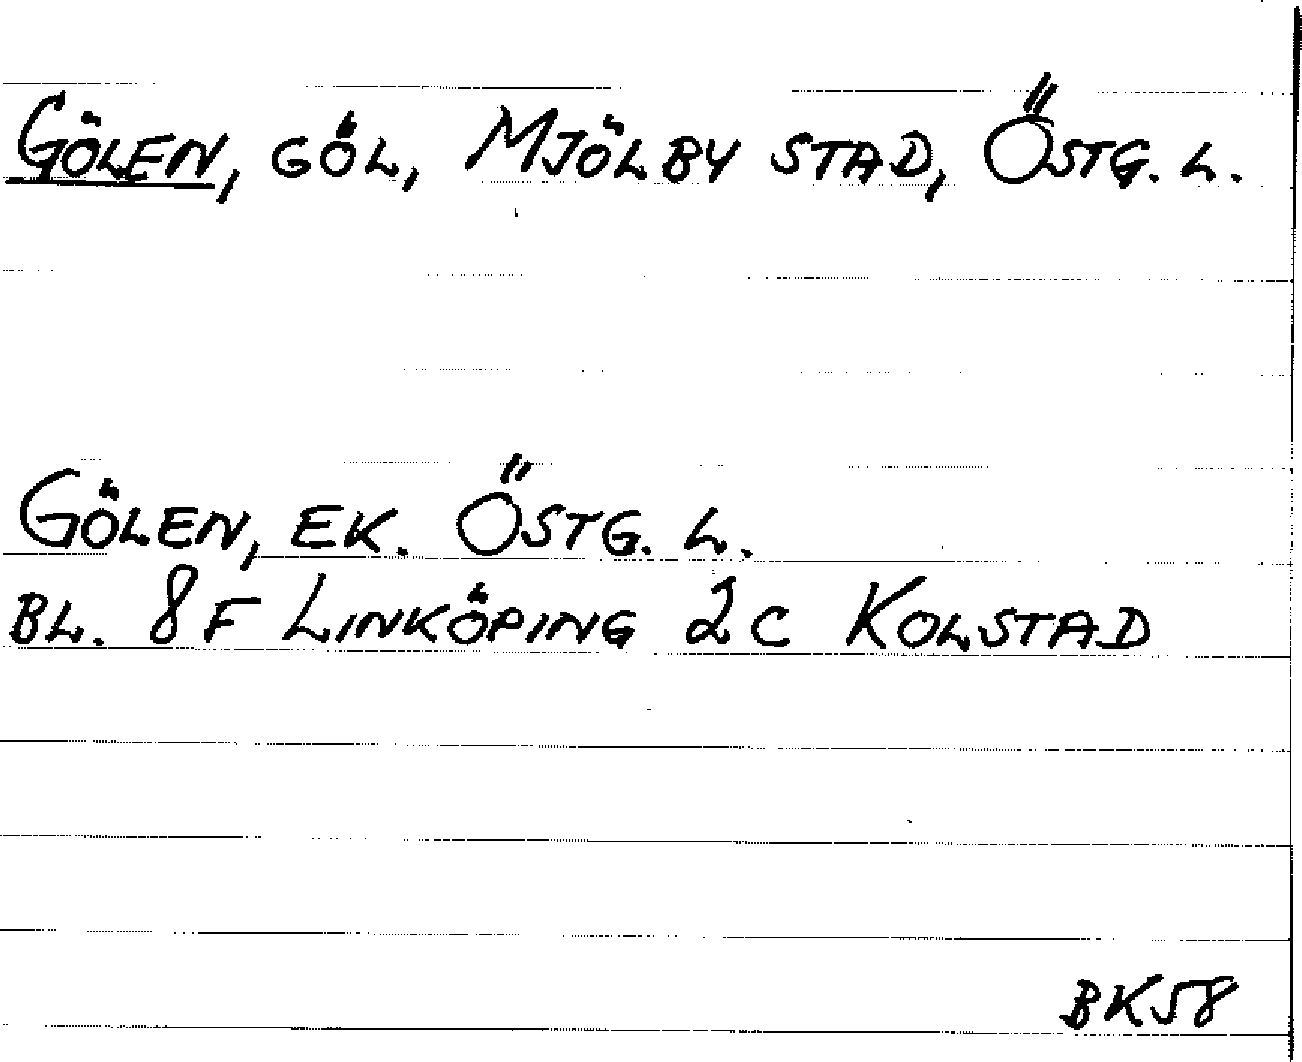 GÖLEN, GÖL, MJÖLBY STAD, ÖSTG. L.
GÖLEN, EK. ÖSTG. L.
BL. 8F LINKÖPING 2C KOLSTAD
BK58